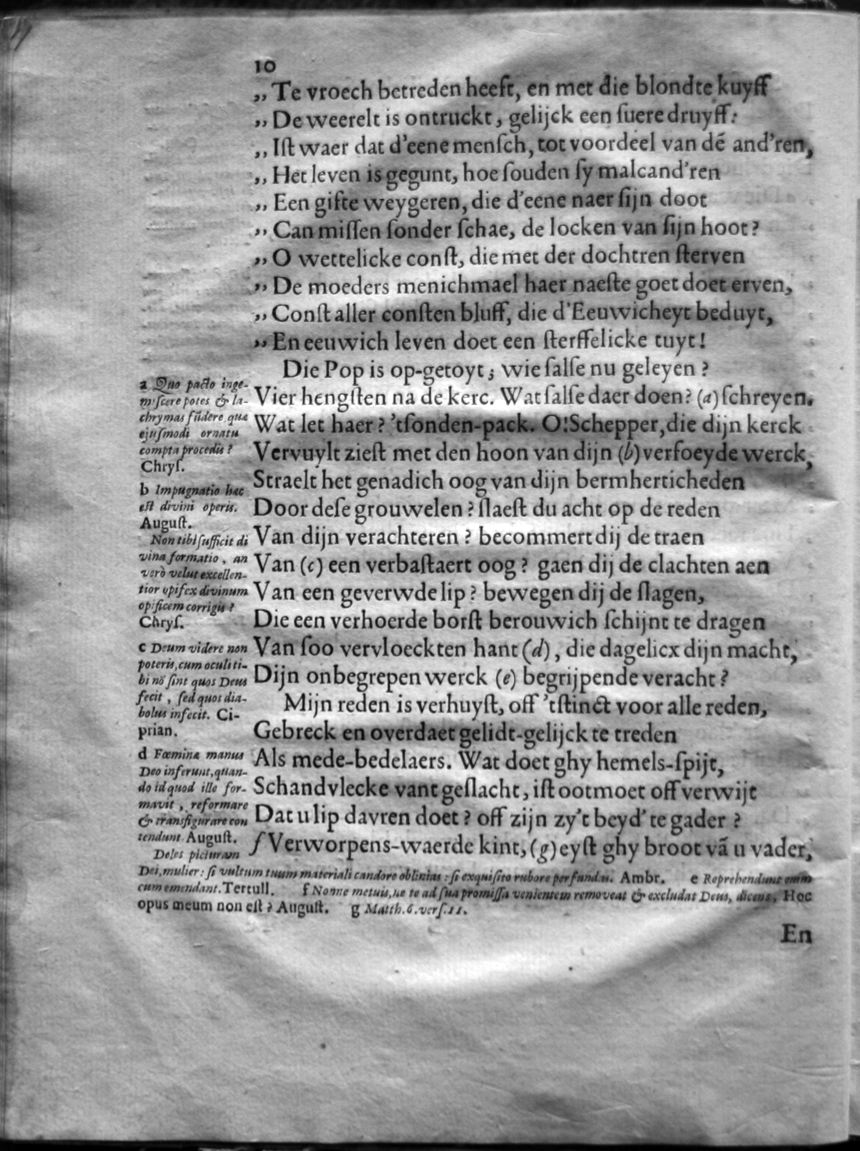 10
„Te vroech betreden heeft, en met die blondte kuyff
„De weerelt is ontruckt, gelijck een suere druyff:
„Ist waer dat d'eene mensch, tot voordeel van dē and'ren,
„Het leven is gegunt, hoe souden sy malcand'ren
„Een gifte weygeren, die d'eene naer sijn doot
„Can missen sonder schae, de locken van sijn hoot?
„O wettelicke const, die met der dochtren sterven
„De moeders menichmael haer naeste goet doet erven,
„Const aller consten bluff, die d'Eeuwicheyt beduyt,
„En eeuwich leven doet een sterffelicke tuyt!
Die Pop is op-getoyt; wie salse nu geleyen?
Vier hengsten na de kerc. Wat salse daer doen? (a) schreyen.
Wat let haer? 'tsonden-pack. O! Schepper, die dijn kerck
Vervuylt ziest met den hoon van dijn (b) verfoeyde werck,
Straelt het genadich oog van dijn bermherticheden
Door dese grouwelen? slaest du acht op de reden
Van dijn verachteren? becommert dij de traen
Van (c) een verbastaert oog? gaen dij de clachten aen
Van een geverwde lip? bewegen dij de slagen,
Die een verhoerde borst berouwich schijnt te dragen
Van soo vervloeckten hant (d), die dagelicx dijn macht,
Dijn onbegrepen werck (e) begrijpende veracht?
Mijn reden is verhuyst, off 'tstinct voor alle reden,
Gebreck en overdaet gelidt-gelijck te treden
Als mede-bedelaers. Wat doet ghy hemels-spijt,
Schandvlecke vant geslacht, ist ootmoet off verwijt
Dat u lip davren doet? off zijn zy't beyd' te gader?
f Verworpens-waerde kint, (g) eyst ghy broot vā u vader,
a Quo pacto inge-
miscere potes & la-
chrymas fūdere quæ
ejusmodi ornatu
compta procedis?
Chrys.
b Impugnatio hæc
est divini operis.
August.
Non tibi sufficit di
vina formatio, an
verò velut excellen-
tior opifex divinum
opificem corrigis?
Chrys.
c Deum videre non
poteris, cum oculi ti-
bi nō sint quos Deus
fecit, sed quos dia-
bolus infecit. Ci-
prian.
d Fœminæ manus
Deo inferunt, quan-
do id quod ille for-
mavit, reformare
& transfigurare con
tendunt. August.
Deles picturam
Dei, mulier: si vultum tuum materiali candore oblinias: si exquisito rubore perfundis. Ambr. e Reprehendunt enim
cum emendant. Tertull. f Nonne metuis, ne te ad sua promissa venientem removeat & excludat Deus, dicens, Hoc
opus meum non est? August. g Matth. 6. vers. 11.
En